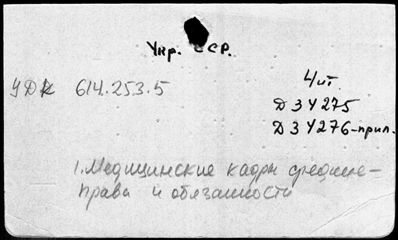 Укр. ССР.
УДК 614.253.5
4 ит
Д 34275
Д 34276-прил.
1. Медицинские кадры средние-
права и обязанности